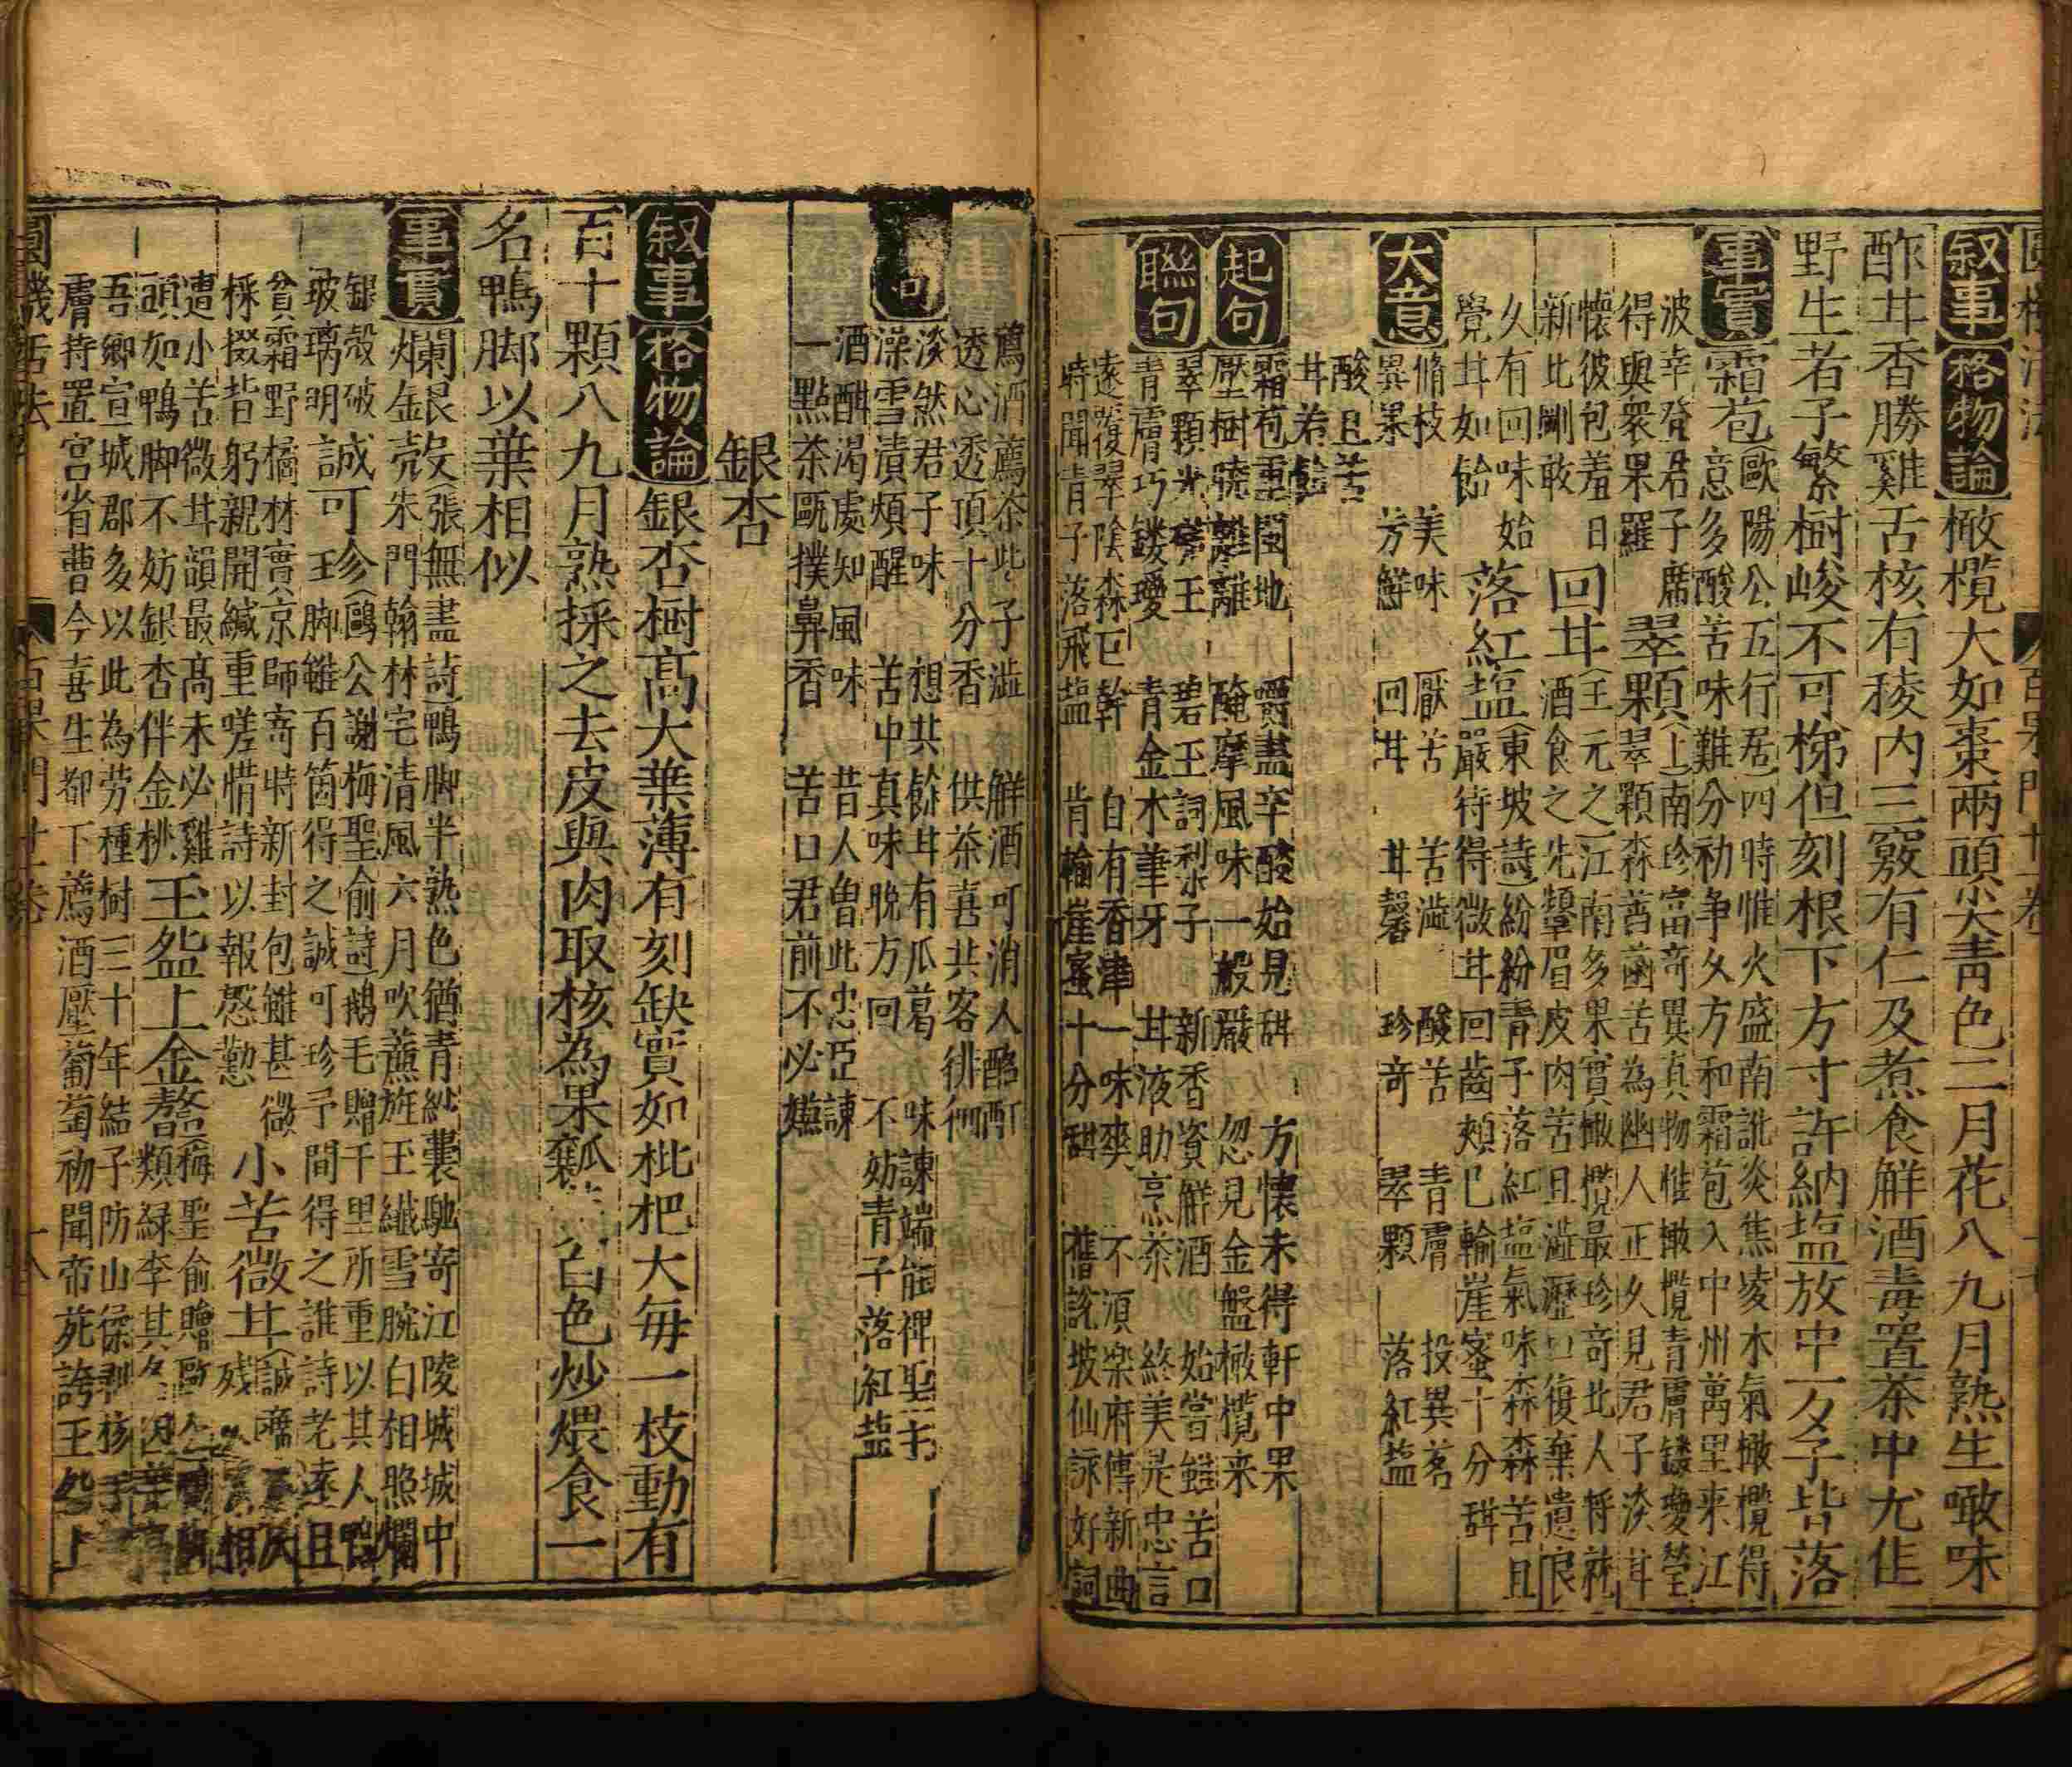 叙事 格物論 橄欖大如棗兩頭尖青色二月花八九月熟生啖味
酢甘香勝雞舌核有稜內三竅有仁及煮食觧酒毒置茶中尤佳
野生者子繁樹峻不可梯但刻根下方寸許納塩放中一夕子皆落
事實 霜苞(歐陽公五行居四時惟火盛南訛炎焦凌木氣橄欖得
意多酸苦味難分初爭久方和霜苞入中州萬里來江
波幸登君子席 翠顆(上南珍富竒異真物惟橄欖青膚鏤瓊瑩
得與衆果羅 翠顆森萏菡苦為幽人正久見君子淡甘
懷彼包羞日 回甘(王元之江南多果實橄欖最珍竒北人將就
新比剛敢 酒食之先顰眉皮肉苦且澁瀝口復棄遺良
久有回味始 落紅塩(東坡詩紛紛青子落紅塩氣味森森苦且
覺甘如飴 嚴待得微甘回齒頰已輸崖蜜十分甜
大意 脩枝 美味 厭苦 苦澁 酸苦 青膚 投異茗
異果 芳鮮 回甘 甘馨 珍竒 翠顆 落紅塩
酸且苦
甘若飴
起句 霜苞重閩地 嚼盡辛酸始見甜 方懷未得軒中果
壓樹驍離離 醃摩風味一般嚴 忽見金盤橄欖来
聯句 翠顆 王 碧玉詞梨子 新香資觧酒 始嘗雖苦口
青膚巧鏤瓊 青金木筆牙 甘液助烹茶 終美是忠言
遠覆翠陰森巨幹 自有香津一味爽 不湏樂府傳新曲
時聞青子落飛塩 肯輸崖蜜十分甜 舊説坡仙詠好詞
薦酒薦茶此子澁 觧酒可消人酩酊
透心透頂十分香 供茶喜共客徘徊
句 淡然君子味 想共餘甘有瓜葛 味諫端能裨聖主
澡雪潰煩醒 苦中真味晚方回 不妨青子落紅塩
酒酣渴處知風味 昔人曾此忠臣諫
一點茶甌撲鼻香 苦口君前不必嫌
銀杏
叙事 格物論 銀杏樹髙大葉薄有刻缺實如枇杷大每一枝動有
百十顆八九月熟採之去皮與肉取核為果瓤 白色炒煨食一
名鴨脚以葉相似
事實 爛銀殼(張無盡詩鴨脚半熟色猶青紗囊馳寄江陵城城中
朱門翰林宅清風六月吹蔗旌玉纎雪腕白相照爛
銀殼破 誠可珍(鷗公謝梅聖俞詩鵝毛贈千里所重以其人鴨
玻璃明 脚雖百箇得之誠可珍予間得之誰詩老逺且
貧霜野摘林實京師寄時新封包雖甚微
採掇皆躬親開緘重嗟惜詩以報慇懃 小苦微甘(誠齋 殘 相
遭小苦微甘韻最髙未必雞
頭如鴨脚不妨銀杏伴金桃 玉盌上金鼇(梅聖俞贈歐
類緑李其名
吾鄉宣城郡多以此為劳種樹三十年結子防山猱剥核手
膚持置宫省曹今喜生都下薦酒壓葡萄初聞帝苑誇王 上
圓機活法 百果門 卄二卷 十八